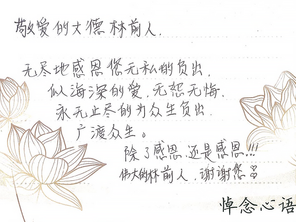 敬爱的大德林前人.
无尽地感恩您无私的负出.
似海深的爱.无怨无悔.
永无止尽的为众生负出.
广渡众生。
除了感恩 还是感恩!!!
伟大的林前人.谢谢您
悼念心语